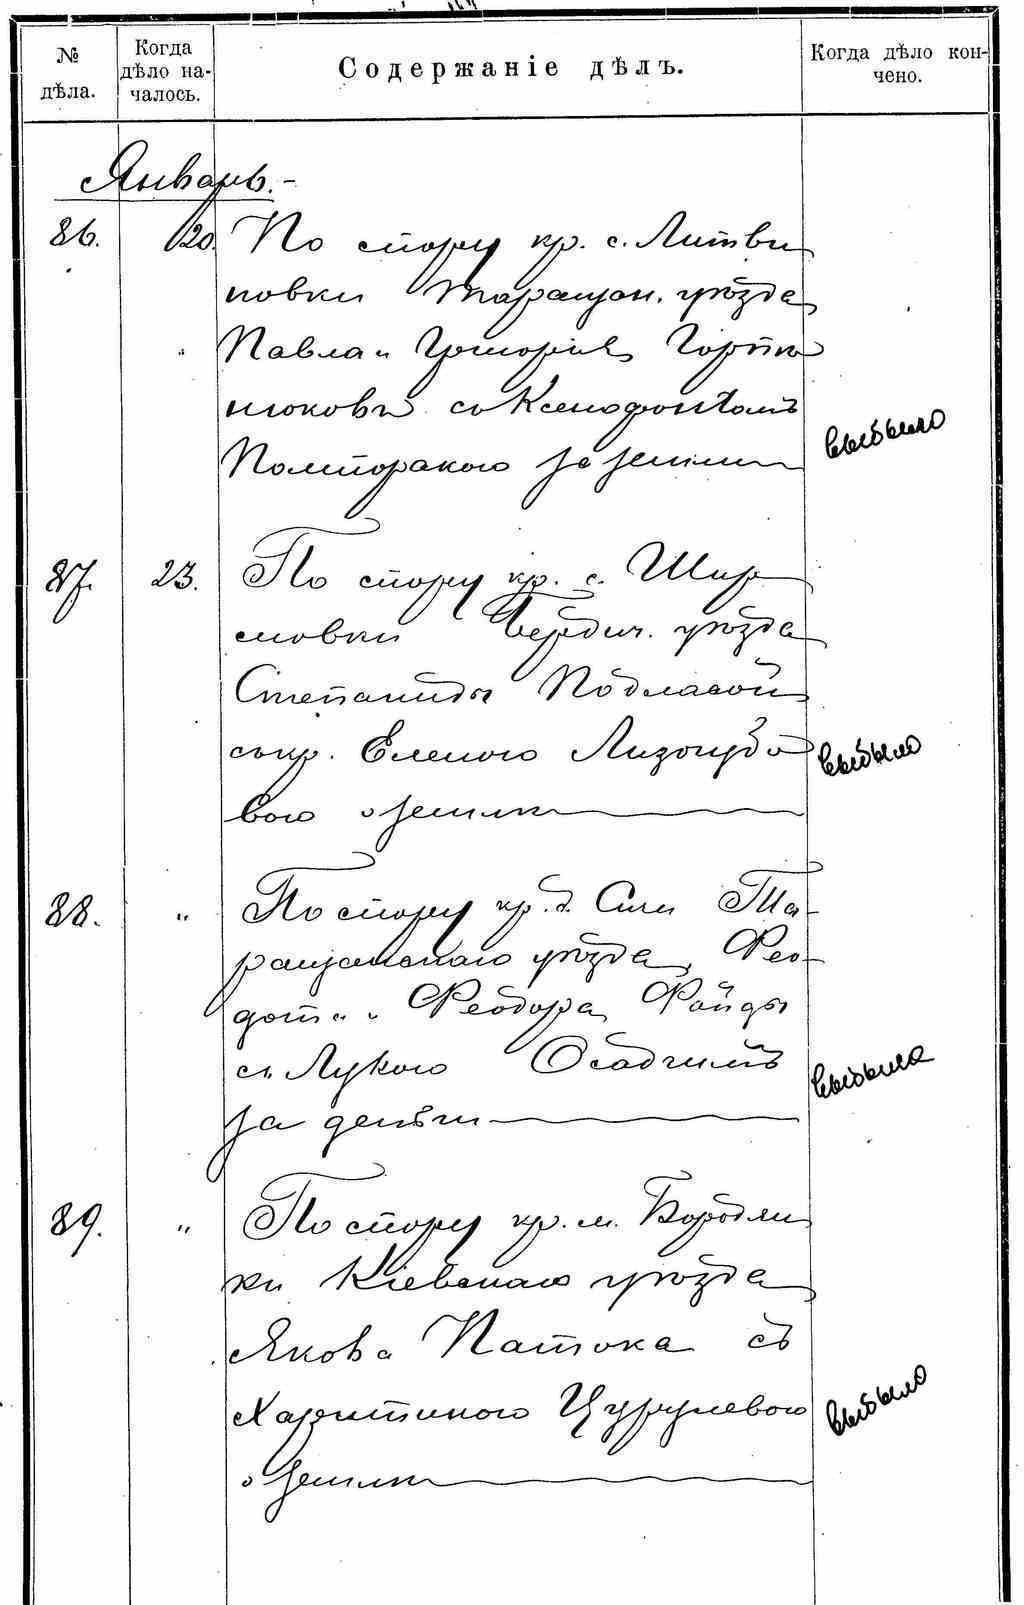 № дѣла.
Когда дѣло на-
чалось.
Содержаніе дѣлъ.
Когда дѣло кон-
чено.
Январь.-
86. 20. По спору кр. с. Литви
новки Таращан. уѣзда
Павла и Григорія
съ Ксенофонтомъ
за землю
выбыло
87. 23. По спору кр. с. Шир
мовки Бердич. уѣзда
Степаниды Подласой
съ кр. Еленою Лизогубо
вою о землѣ
выбыло
88. " По спору кр. д. Сичи Та-
ращанскаго уѣзда, Фео-
дота и Феодора Фойды
съ Лукою Осадчимъ
за деньги
выбыла
89. " По спору кр. м. Бородян
ки Кіевскаго уѣзда
Якова Патока съ
Харитиною Цурулевою
о землѣ
выбыло